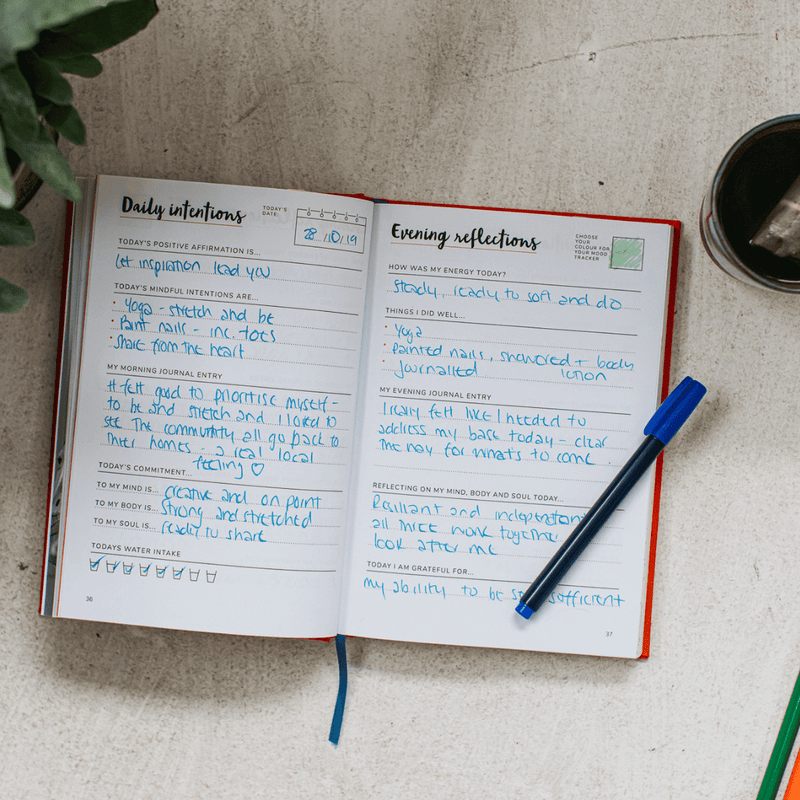 Daily intentions
TODAY'S
DATE:
28/10/19
TODAY'S POSITIVE AFFIRMATION IS...
Let inspiration lead you
TODAY'S MINDFUL INTENTIONS ARE...
• Yoga - stretch and be
• Paint nails - inc. toes
• Share from the heart
MY MORNING JOURNAL ENTRY
It felt good to prioritise myself -
to be and stretch and I loved to
see the community all go back to
their homes - a real local
feeling ♡
TODAY'S COMMITMENT...
TO MY MIND IS... creative and on point
TO MY BODY IS... strong and stretched
TO MY SOUL IS... ready to share
TODAYS WATER INTAKE
36
Evening reflections
CHOOSE
YOUR
COLOUR FOR
YOUR MOOD
TRACKER
HOW WAS MY ENERGY TODAY?
Steady, ready to soft and do
THINGS I DID WELL...
• Yoga
• painted nails, showered + body
lotion
• Journalled
MY EVENING JOURNAL ENTRY
I really felt like I needed to
address my base today - clear
the way for whats to come.
REFLECTING ON MY MIND, BODY AND SOUL TODAY...
Resilliant and independent
all three work together
look after me
TODAY I AM GRATEFUL FOR...
my ability to be sufficient
37